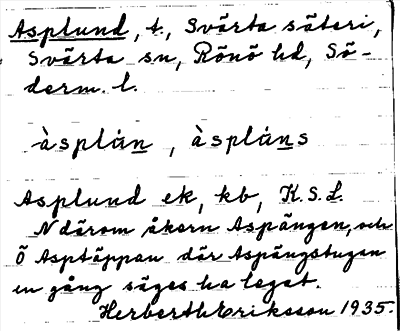 Asplund, t., Svärta säteri,
Svärta sn, Rönö hd, Sö-
derm. l.
àsplán, àspláns
Asplund ek, kb, K.S.L.
N därom åkern Aspängen, och
Ö Asptäppan där Aspängstugan
en gång säges ha legat.
Herberth Eriksson 1935.